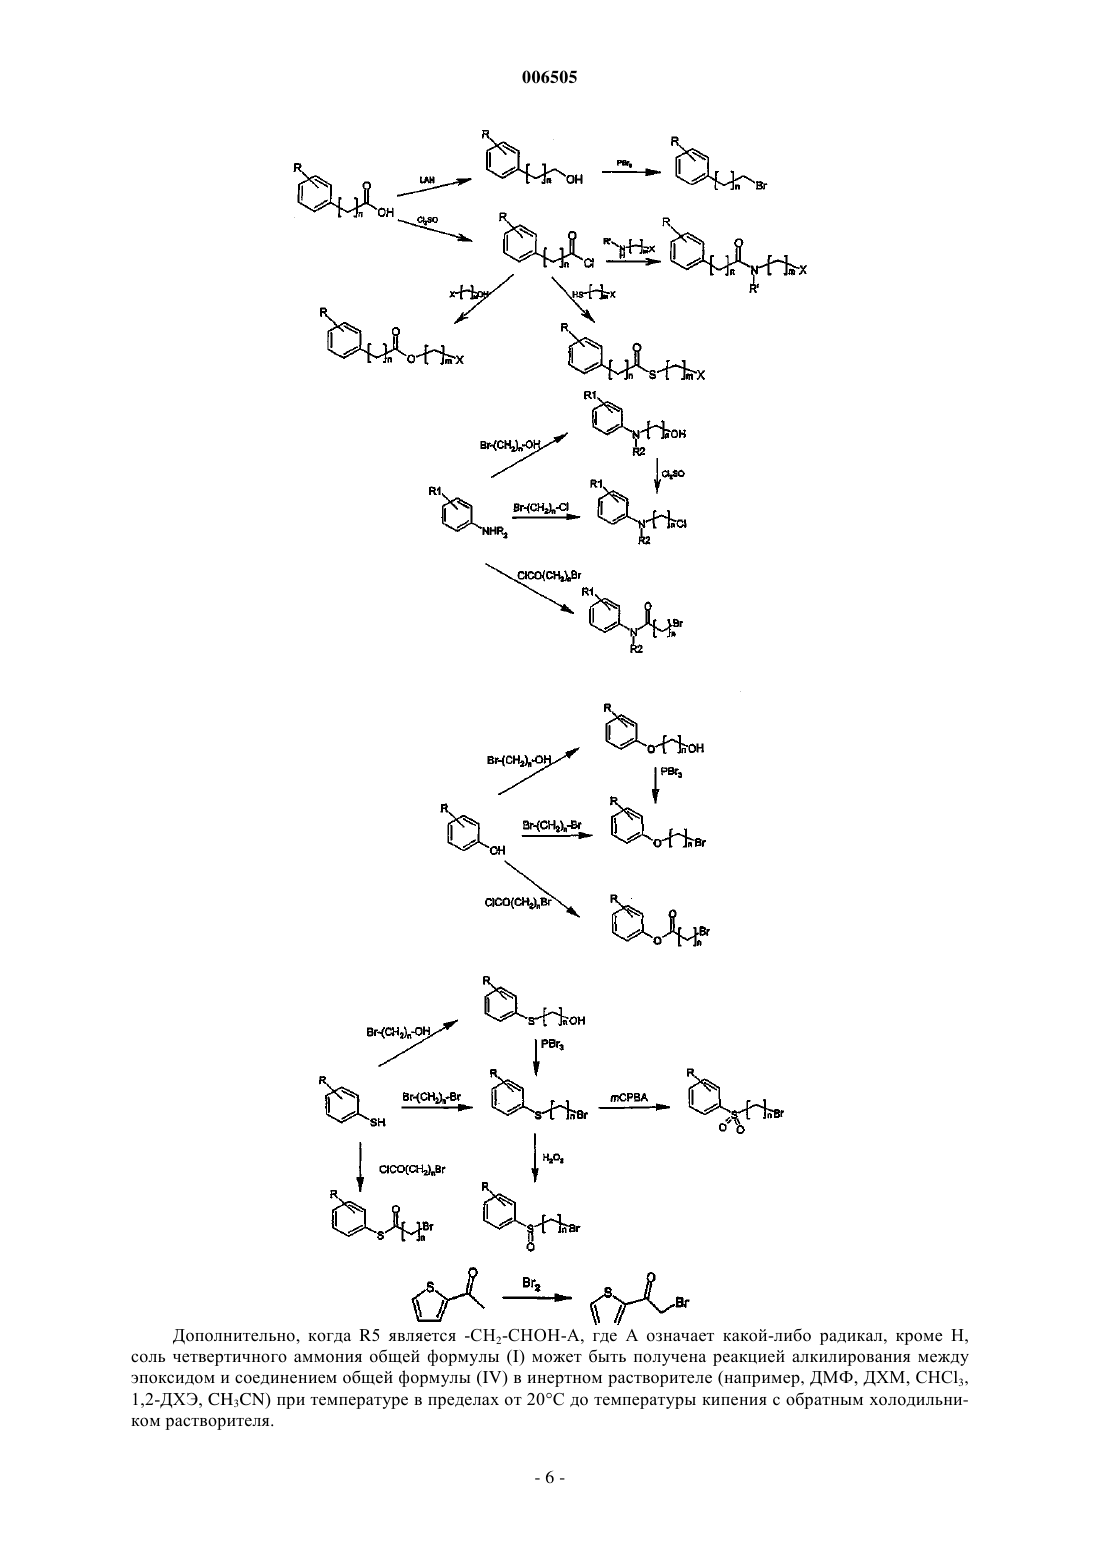 006505
R
R
PBr3
LAH
[ ]n OH
[ ]n Br
R
O
[ ]n OH
Cl2SO
R
O
[ ]n Cl
R' N H [ ]m X
R
O
[ ]n N [ ]m X
R'
X [ ]n OH
HS [ ]m X
R
O
[ ]n O [ ]m X
R
O
[ ]n S [ ]m X
R1
N [ ]n OH
R2
Br-(CH2)n-OH
Cl2SO
R1
NHR2
Br-(CH2)n-Cl
R1
N [ ]n Cl
R2
ClCO(CH2)nBr
R1
O
N [ ]n Br
R2
R
O [ ]n OH
Br-(CH2)n-OH
PBr3
R
OH
Br-(CH2)n-Br
R
O [ ]n Br
ClCO(CH2)nBr
R
O
O [ ]n Br
R
S [ ]n OH
Br-(CH2)n-OH
PBr3
R
SH
Br-(CH2)n-Br
R
S [ ]n Br
mCPBA
R
S [ ]n Br
O O
ClCO(CH2)nBr
H2O2
R
O
S [ ]n Br
R
S [ ]n Br
O
S
O
Br2
S
O
Br
Дополнительно, когда R5 является -CH2-CHOH-A, где A означает какой-либо радикал, кроме H,
соль четвертичного аммония общей формулы (I) может быть получена реакцией алкилирования между
эпоксидом и соединением общей формулы (IV) в инертном растворителе (например, ДМФ, ДХМ, CHCl3,
1,2-ДХЭ, CH3CN) при температуре в пределах от 20°C до температуры кипения с обратным холодильни-
ком растворителя.
- 6 -